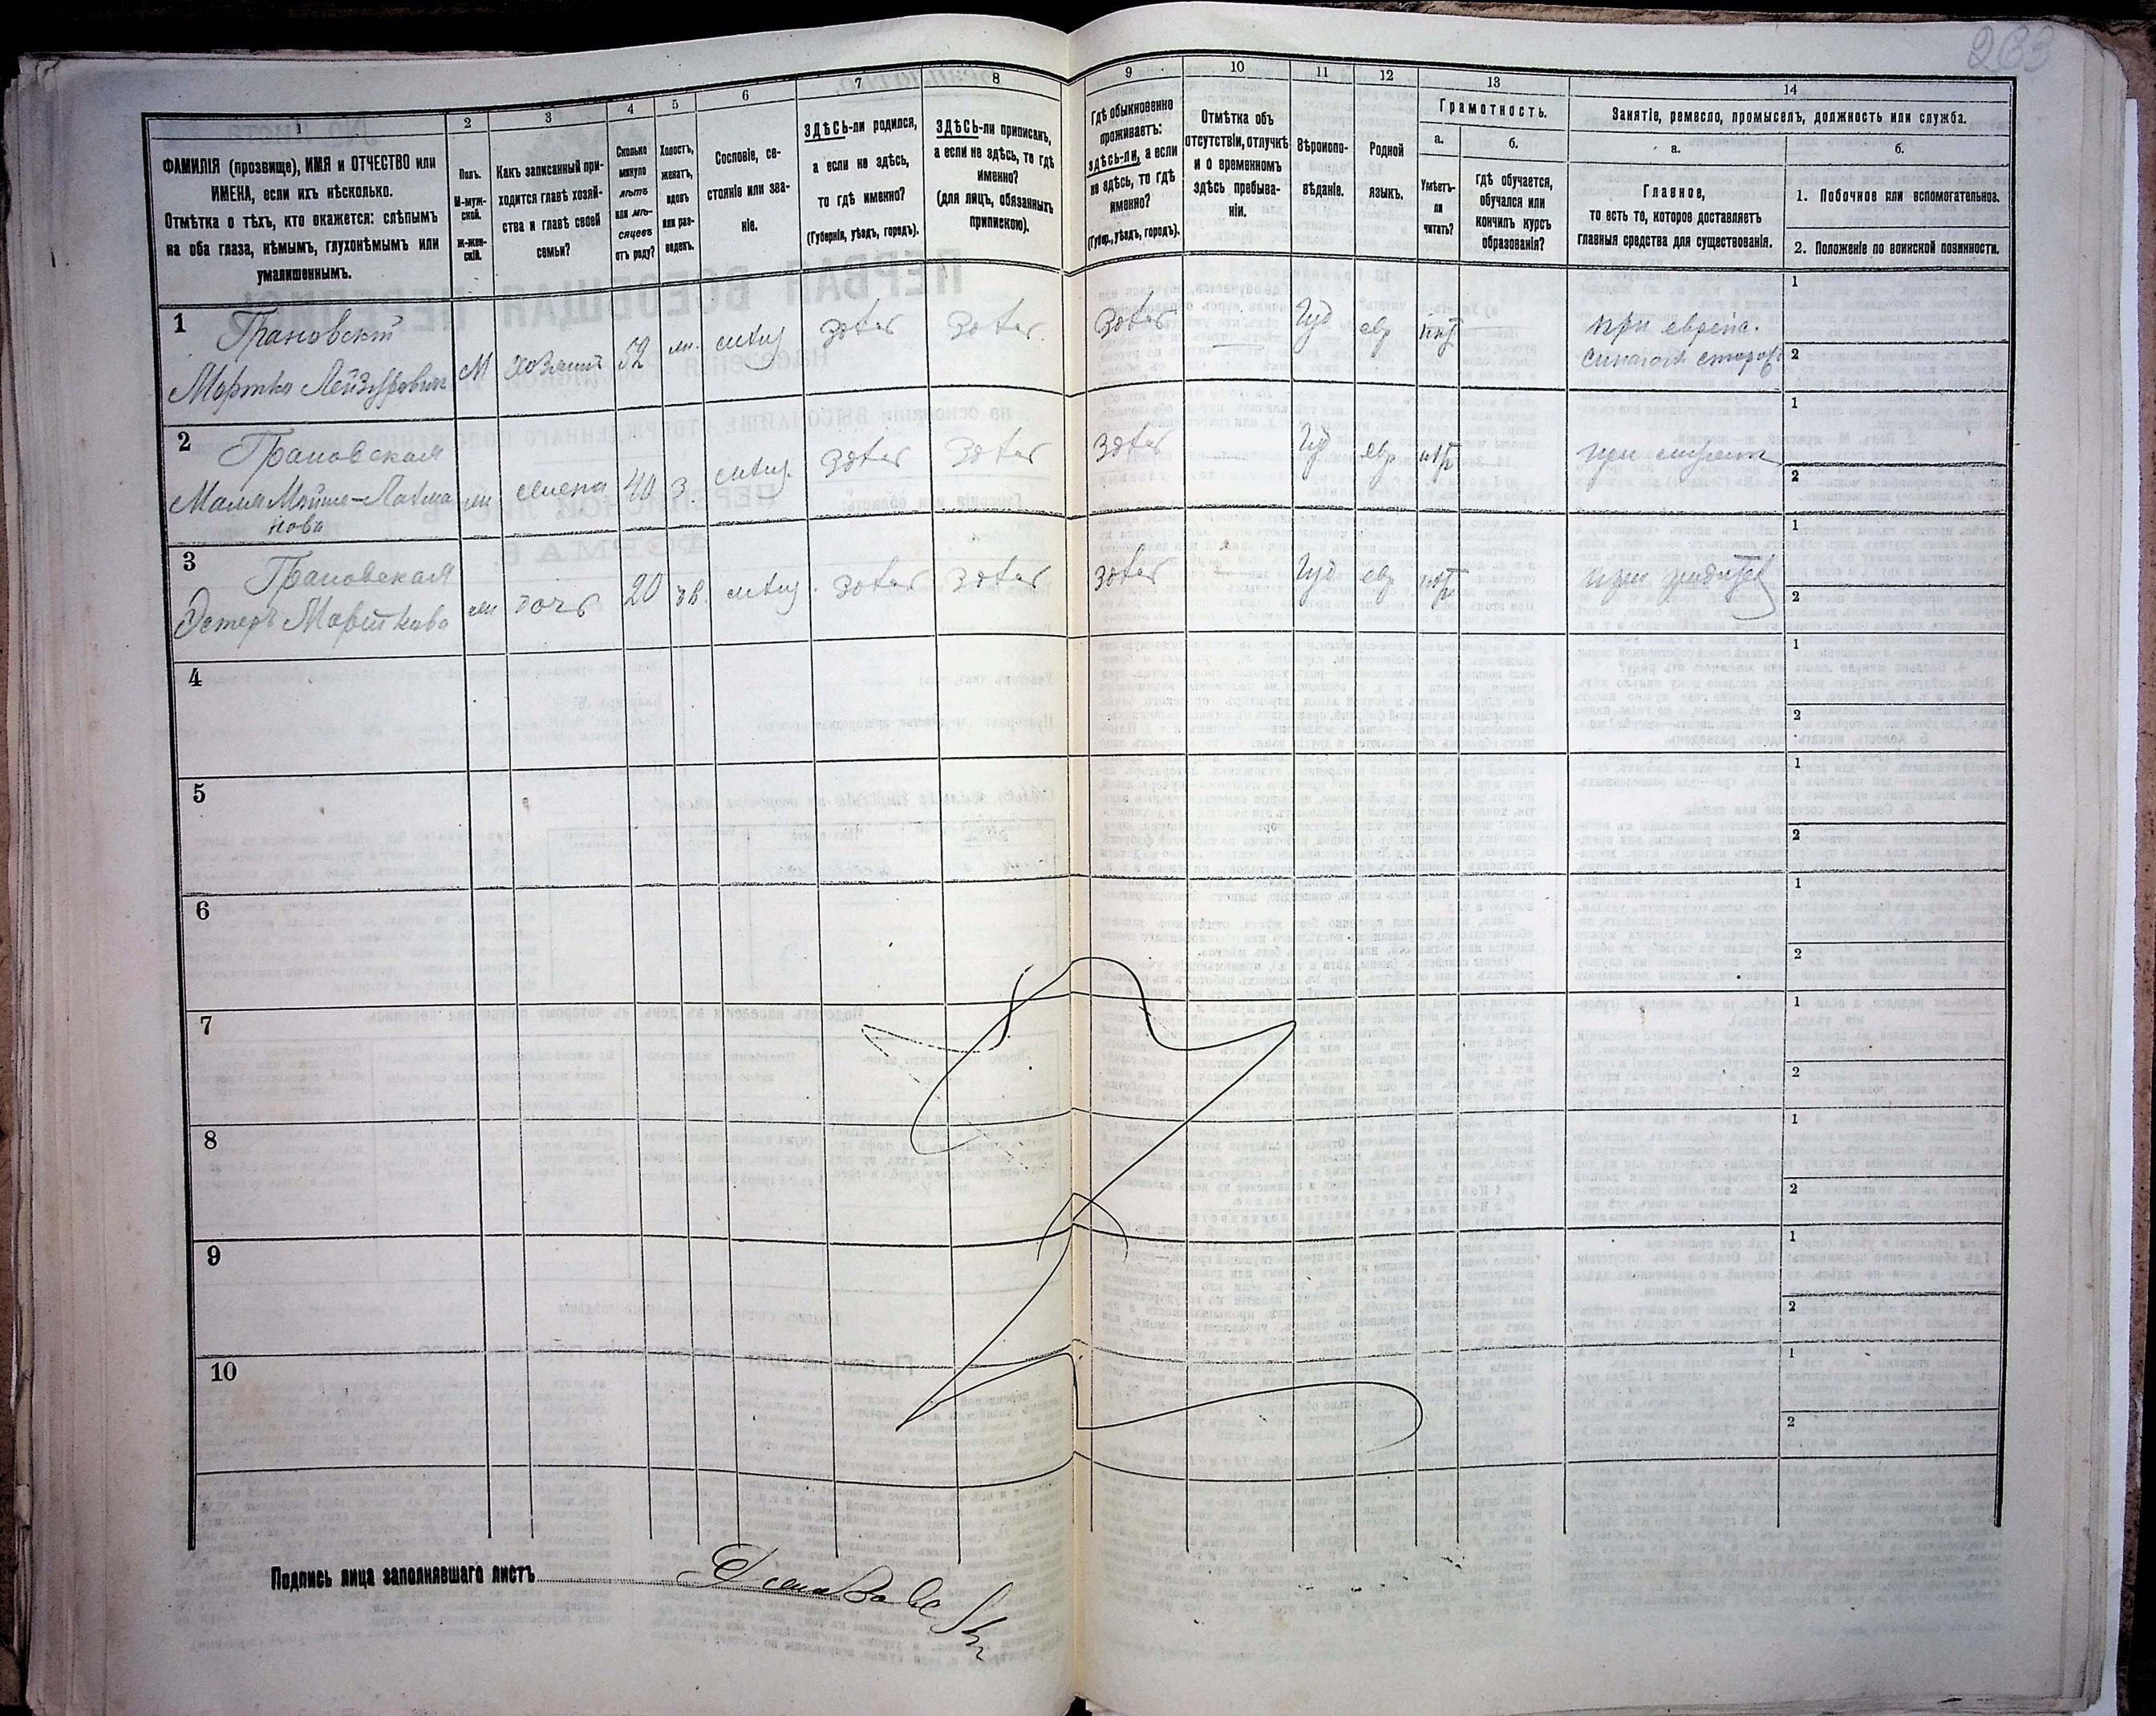 233
1
2
3
4
5
6
7
8
9
10
11
12
13
14
ФАМИЛІЯ (прозвище), ИМЯ и ОТЧЕСТВО или
ИМЕНА, если ихъ нѣсколько.
Отмѣтка о тѣхъ, кто окажется: слѣпымъ
на оба глаза, нѣмымъ, глухонѣмымъ или
умалишеннымъ.
Полъ.
М-муж-
ской.
Ж-жен-
скій.
Какъ записанный при-
ходится главѣ хозяй-
ства и главѣ своей
семьи?
Сколько
минуло
лѣтъ
или мѣ-
сяцевъ
отъ роду?
Холостъ,
женатъ,
вдовъ
или раз-
веденъ.
Сословіе, со-
стояніе или зва-
ніе.
ЗДѢСЬ-ли родился,
а если не здѣсь,
то гдѣ именно?
(Губернія, уѣздъ, городъ).
ЗДѢСЬ-ли приписанъ,
а если не здѣсь, то гдѣ
именно?
(для лицъ, обязанныхъ
припискою).
Гдѣ обыкновенно
проживаетъ:
здѣсь-ли, а если
не здѣсь, то гдѣ
именно?
(Губер., уѣздъ, городъ).
Отмѣтка объ
отсутствіи, отлучкѣ
и о временномъ
здѣсь пребыва-
ніи.
Вѣроиспо-
вѣданіе.
Родной
языкъ.
Грамотность.
а.
Умѣетъ-
ли
читать?
б.
Гдѣ обучается,
обучался или
кончилъ курсъ
образованія?
Занятіе, ремесло, промыселъ, должность или служба.
а.
Главное,
то есть то, которое доставляетъ
главныя средства для существованія.
б.
1. Побочное или вспомогательное.
2. Положеніе по воинской повинности.
1
Грановскій
Мортко Лейзеровичъ
М хозяинъ 52 ж. мѣщ здѣсь здѣсь здѣсь Іуд евр
при еврейс.
синагогѣ сторож
1
2
2
Грановская
Маля Мойше-Лотма
нова
ж жена 40 з. мѣщ. здѣсь здѣсь здѣсь Іуд евр при мужѣ
1
2
3
Грановская
Эстеръ Морткова
ж дочь 20 дѣв. мѣщ. здѣсь здѣсь здѣсь Іуд евр
1
2
4
1
2
5
1
2
6
1
2
7
1
2
8
1
2
9
1
2
10
1
2
Подпись лица заполнявшаго листъ